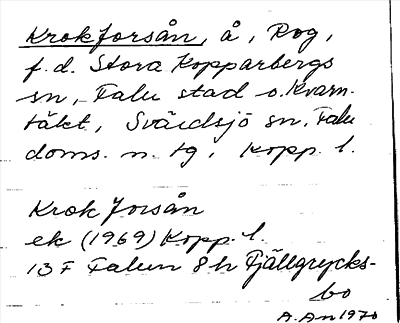 Krokforsån, å, Rog,
f.d. Stora Kopparbergs
sn, Falu stad o. Kvarn-
täkt, Svärdsjö sn, Falu
doms. n. tg, Kopp. l.
Krokforsån
ek (1969) Kopp. l.
13 F Falun 8 h Fjällgrycks-
bo
A. An 1970